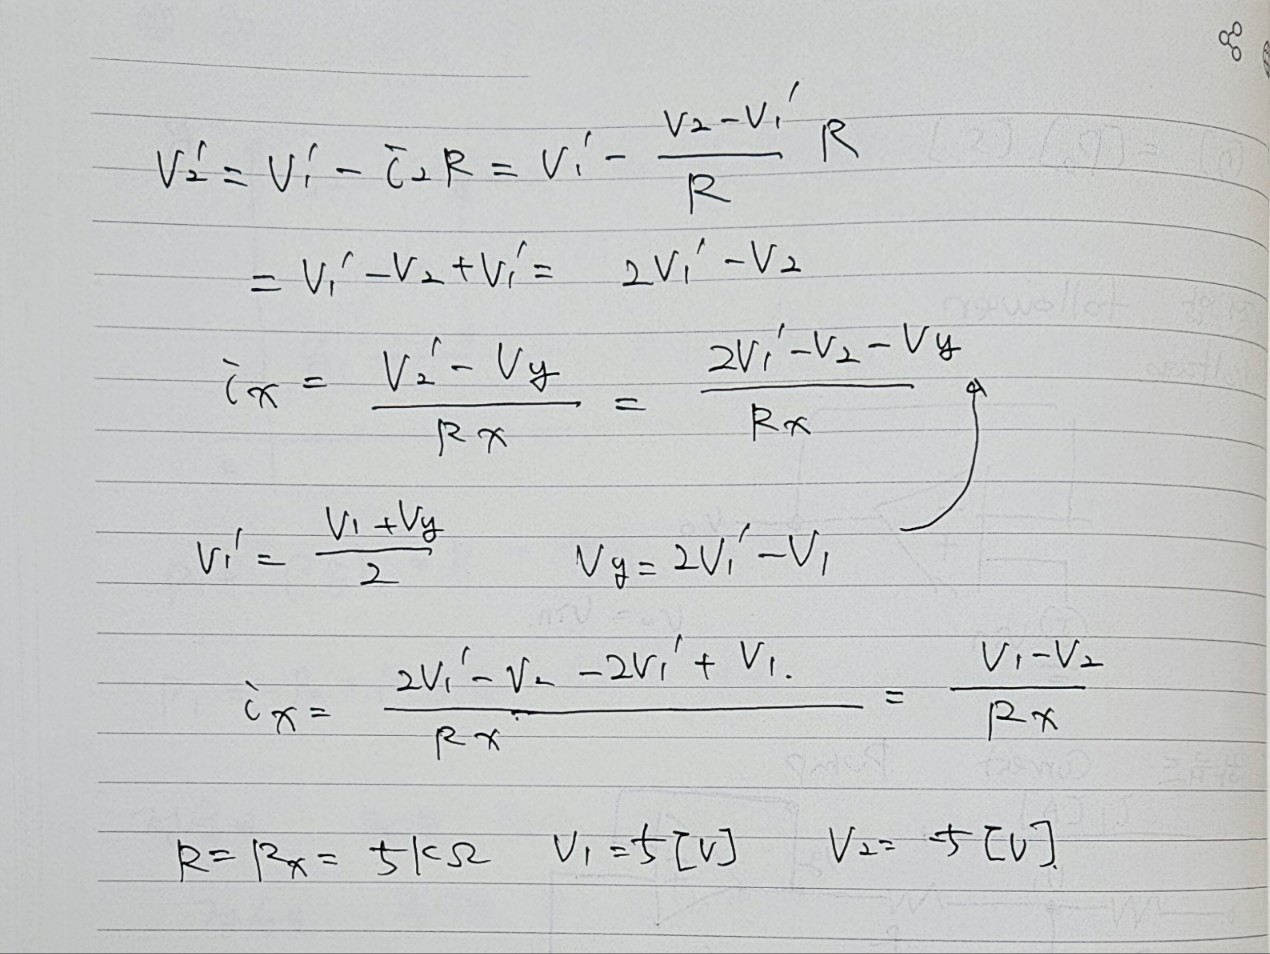 V₂' = V₁' - i₂R = V₁' - (V₂ - V₁')/R R
= V₁' - V₂ + V₁' = 2V₁' - V₂
iₓ = (V₂' - Vy)/Rx = (2V₁' - V₂ - Vy)/Rx
V₁' = (V₁ + Vy)/2 Vy = 2V₁' - V₁
iₓ = (2V₁' - V₂ - 2V₁' + V₁.)/Rx = (V₁ - V₂)/Rx
R = Rx = 5kΩ V₁ = 5 [V] V₂ = -5 [V].